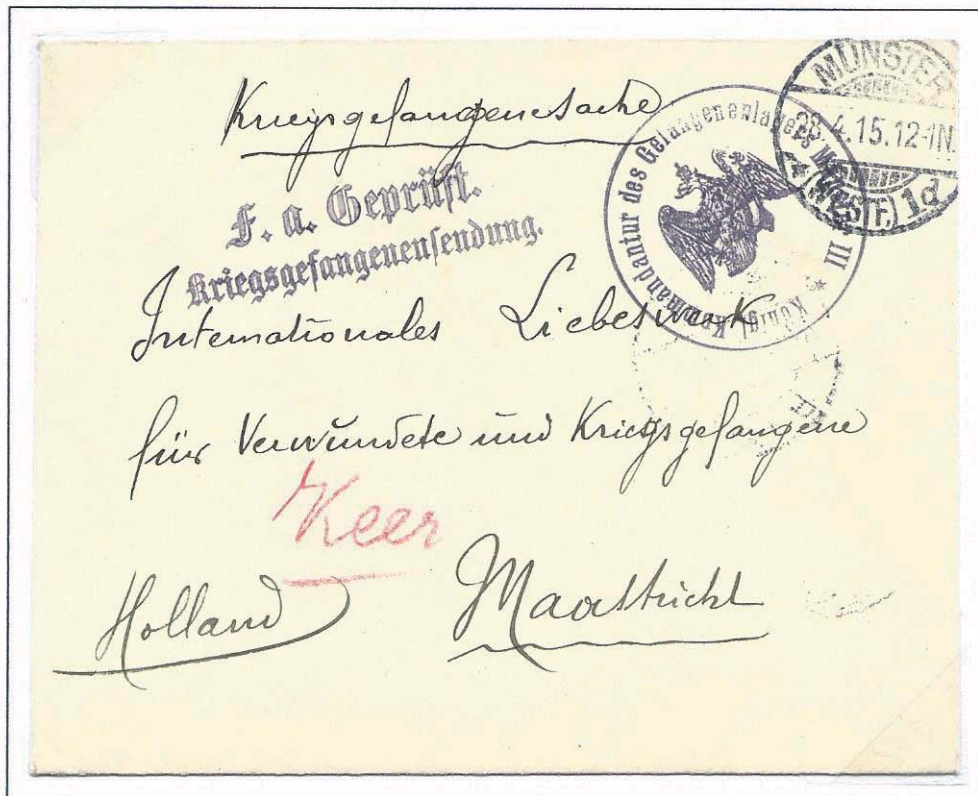 Kriegsgefangenesache
MÜNSTER
28.4.15.12-1N.
(WESTF.) 1d
F. a. Geprüft.
Kriegsgefangenensendung.
Königl. Kommandantur des Gefangenenlagers III
Internationales Liebeswerk
für Verwundete und Kriegsgefangene
Keer
Holland Maastricht